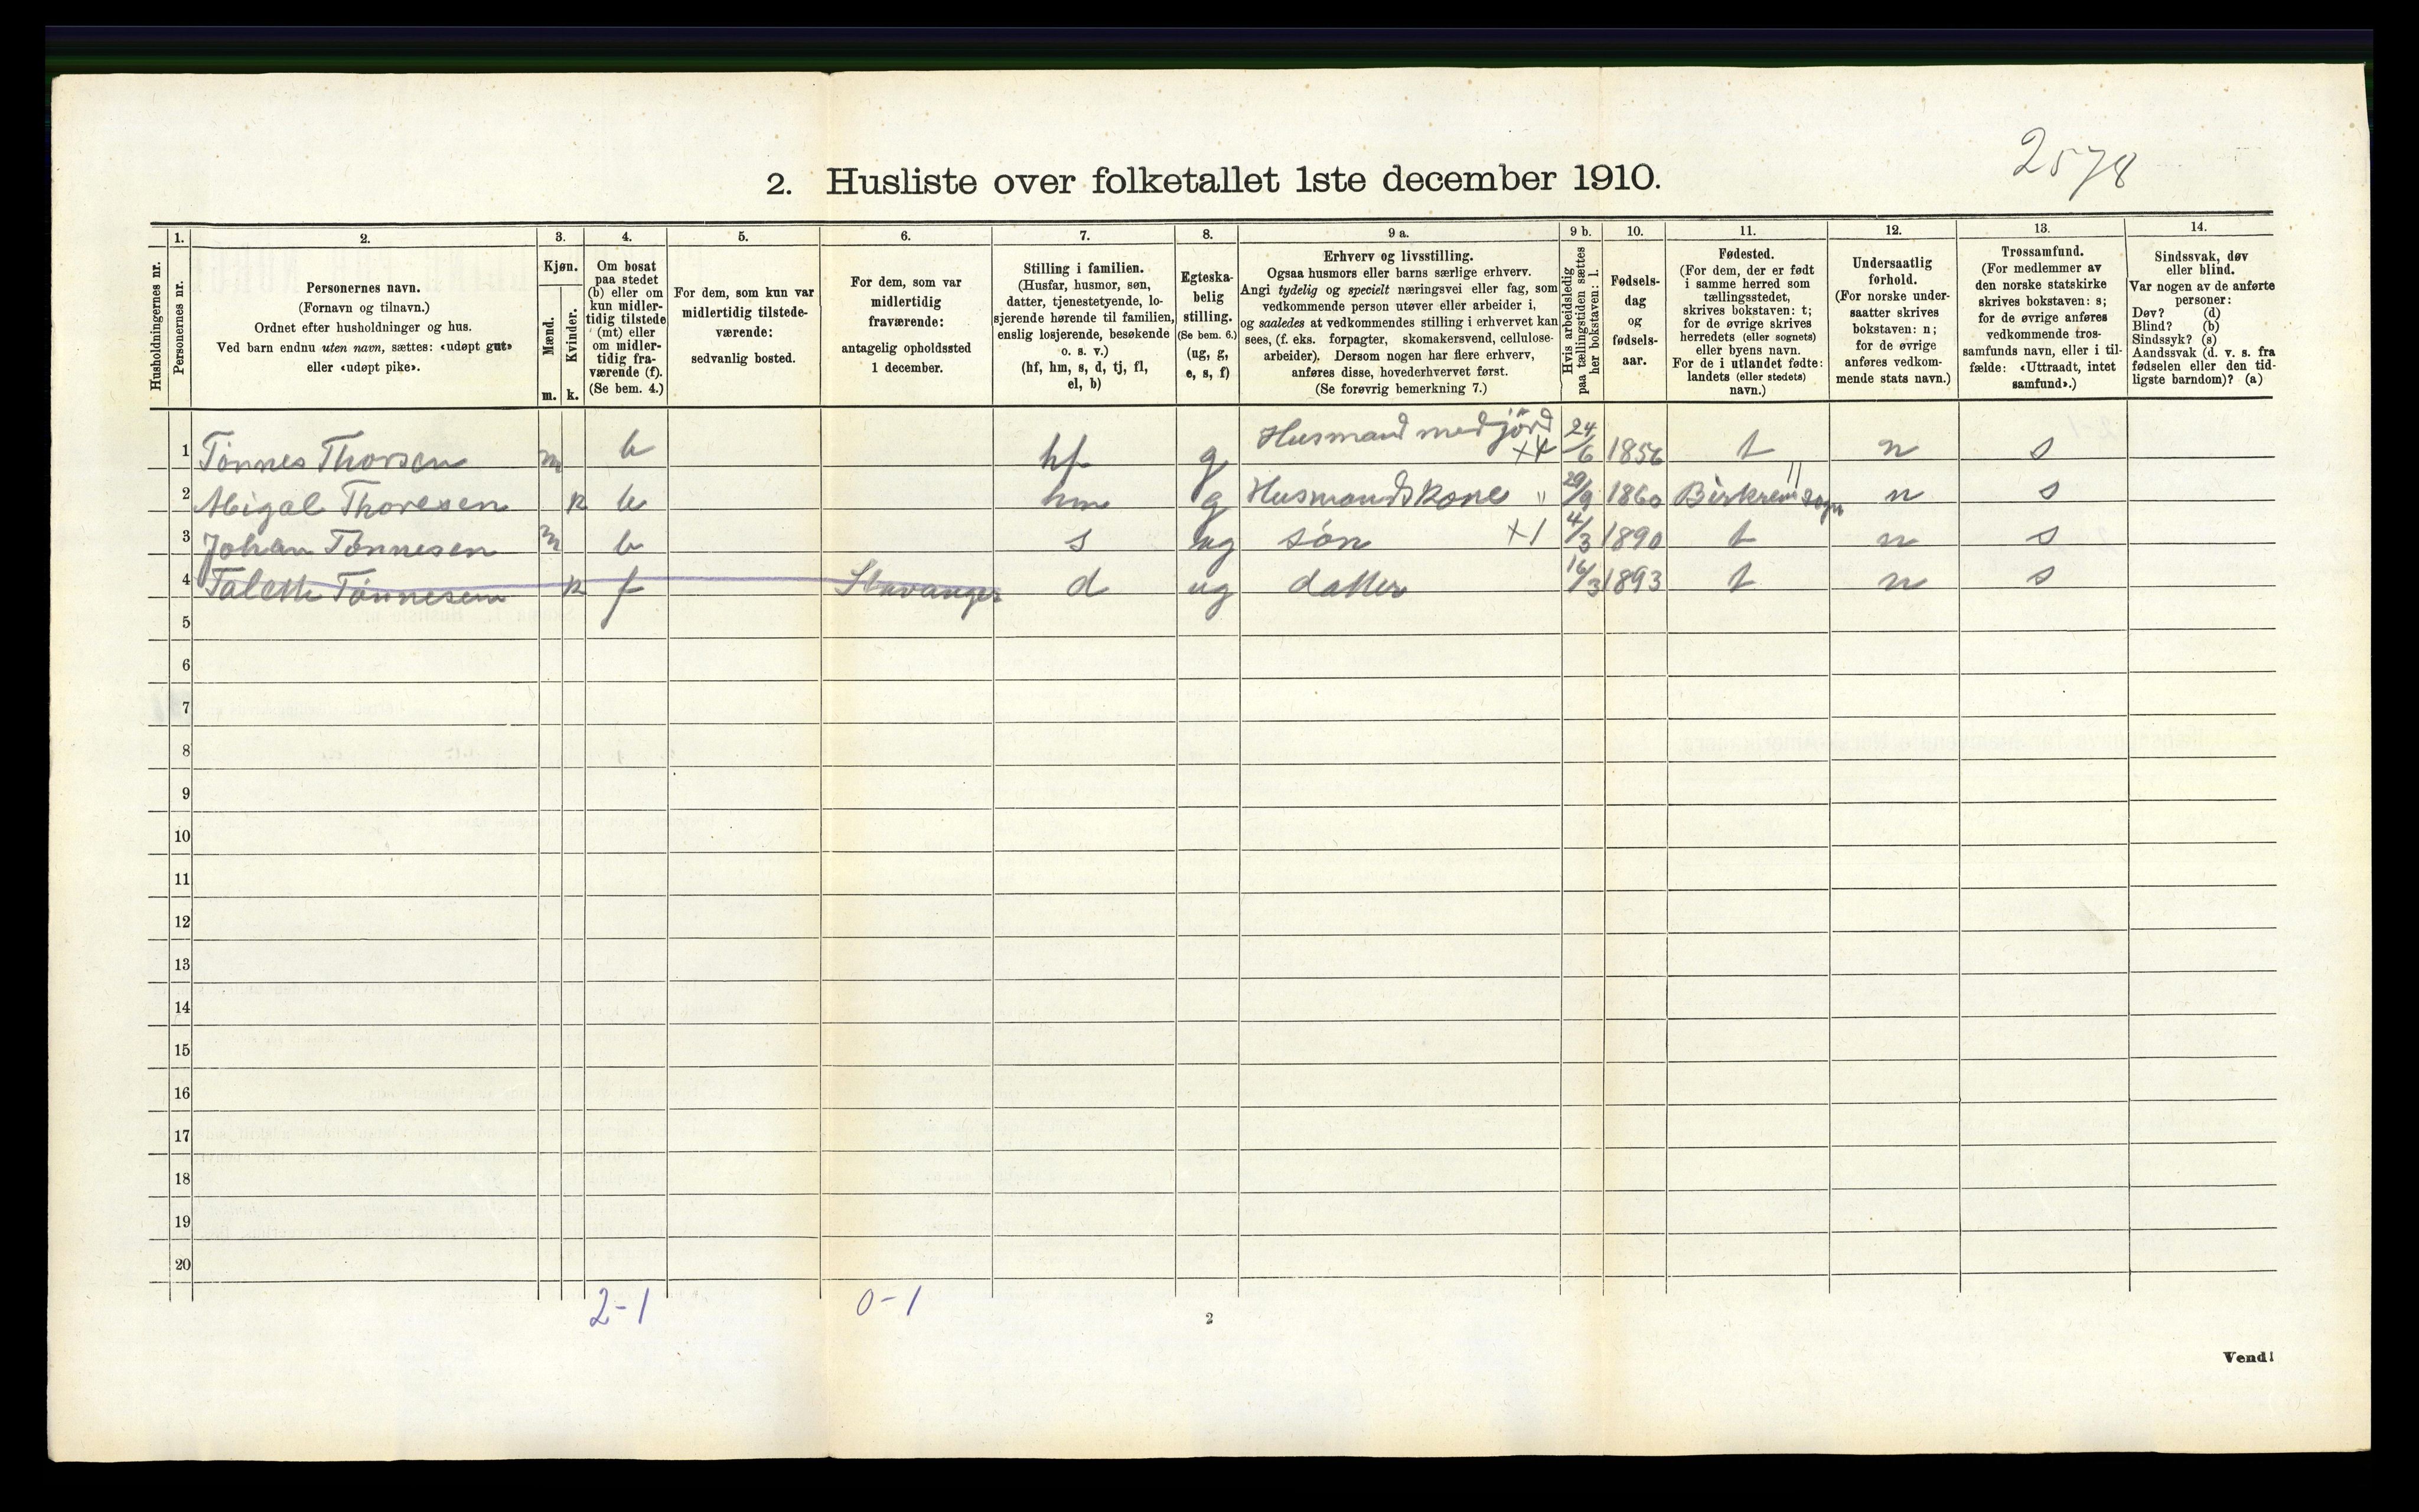 2578
2. Husliste over folketallet 1ste december 1910.
Husholdningernes nr.
1.
Personernes nr.
2.
Personernes navn.
(Fornavn og tilnavn.)
Ordnet efter husholdninger og hus.
Ved barn endnu uten navn, sættes: «udøpt gut»
eller «udøpt pike».
3.
Kjøn.
Mænd.
Kvinder.
m. k.
4.
Om bosat
paa stedet
(b) eller om
kun midler-
tidig tilstede
(mt) eller
om midler-
tidig fra-
værende (f).
(Se bem. 4.)
5.
For dem, som kun var
midlertidig tilstede-
værende:
sedvanlig bosted.
6.
For dem, som var
midlertidig
fraværende:
antagelig opholdssted
1 december.
7.
Stilling i familien.
(Husfar, husmor, søn,
datter, tjenestetyende, lo-
sjerende hørende til familien,
enslig losjerende, besøkende
o. s. v.)
(hf, hm, s, d, tj, fl,
el, b)
8.
Egteska-
belig
stilling.
(Se bem. 6.)
(ug, g,
e, s, f)
9 a.
Erhverv og livsstilling.
Ogsaa husmors eller barns særlige erhverv.
Angi tydelig og specielt næringsvei eller fag, som
vedkommende person utøver eller arbeider i,
og saaledes at vedkommendes stilling i erhvervet kan
sees, (f. eks. forpagter, skomakersvend, cellulose-
arbeider). Dersom nogen har flere erhverv,
anføres disse, hovederhvervet først.
(Se forøvrig bemerkning 7.)
9 b.
Hvis arbeidsledig
paa tællingstiden sættes
her bokstaven: l.
10.
Fødsels-
dag
og
fødsels-
aar.
11.
Fødested.
(For dem, der er født
i samme herred som
tællingsstedet,
skrives bokstaven: t;
for de øvrige skrives
herredets (eller sognets)
eller byens navn.
For de i utlandet fødte:
landets (eller stedets)
navn.)
12.
Undersaatlig
forhold.
(For norske under-
saatter skrives
bokstaven: n;
for de øvrige
anføres vedkom-
mende stats navn.)
13.
Trossamfund.
(For medlemmer av
den norske statskirke
skrives bokstaven: s;
for de øvrige anføres
vedkommende tros-
samfunds navn, eller i til-
fælde: «Uttraadt, intet
samfund».)
14.
Sindssvak, døv
eller blind.
Var nogen av de anførte
personer:
Døv? (d)
Blind? (b)
Sindssyk? (s)
Aandssvak (d. v. s. fra
fødselen eller den tid-
ligste barndom)? (a)
1 Tønnes Thorsen m b hf g Husmand med jord x4 24/6 1856 t n s
2 Abigal Thoresen k b hm g Husmandskone " 29/9 1860 Birkrem sogn n s
3 Johan Tønnesen m b s ug søn x1 4/3 1890 t n s
4 Talette Tønnesen k f Stavanger d ug datter 16/3 1893 t n s
5
6
7
8
9
10
11
12
13
14
15
16
17
18
19
20
2-1 0-1
2
Vend!